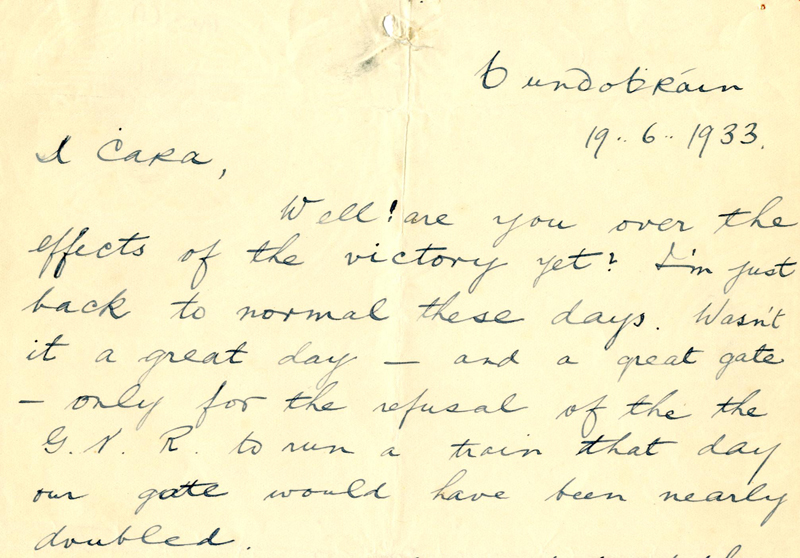 bundobráin
19..6..1933.
A Ċara,
Well! are you over the
effects of the victory yet? I'm just
back to normal these days. Wasn't
it a great day — and a great gate
— only for the refusal of the the
G.N.R. to run a train that day
our gate would have been nearly
doubled.